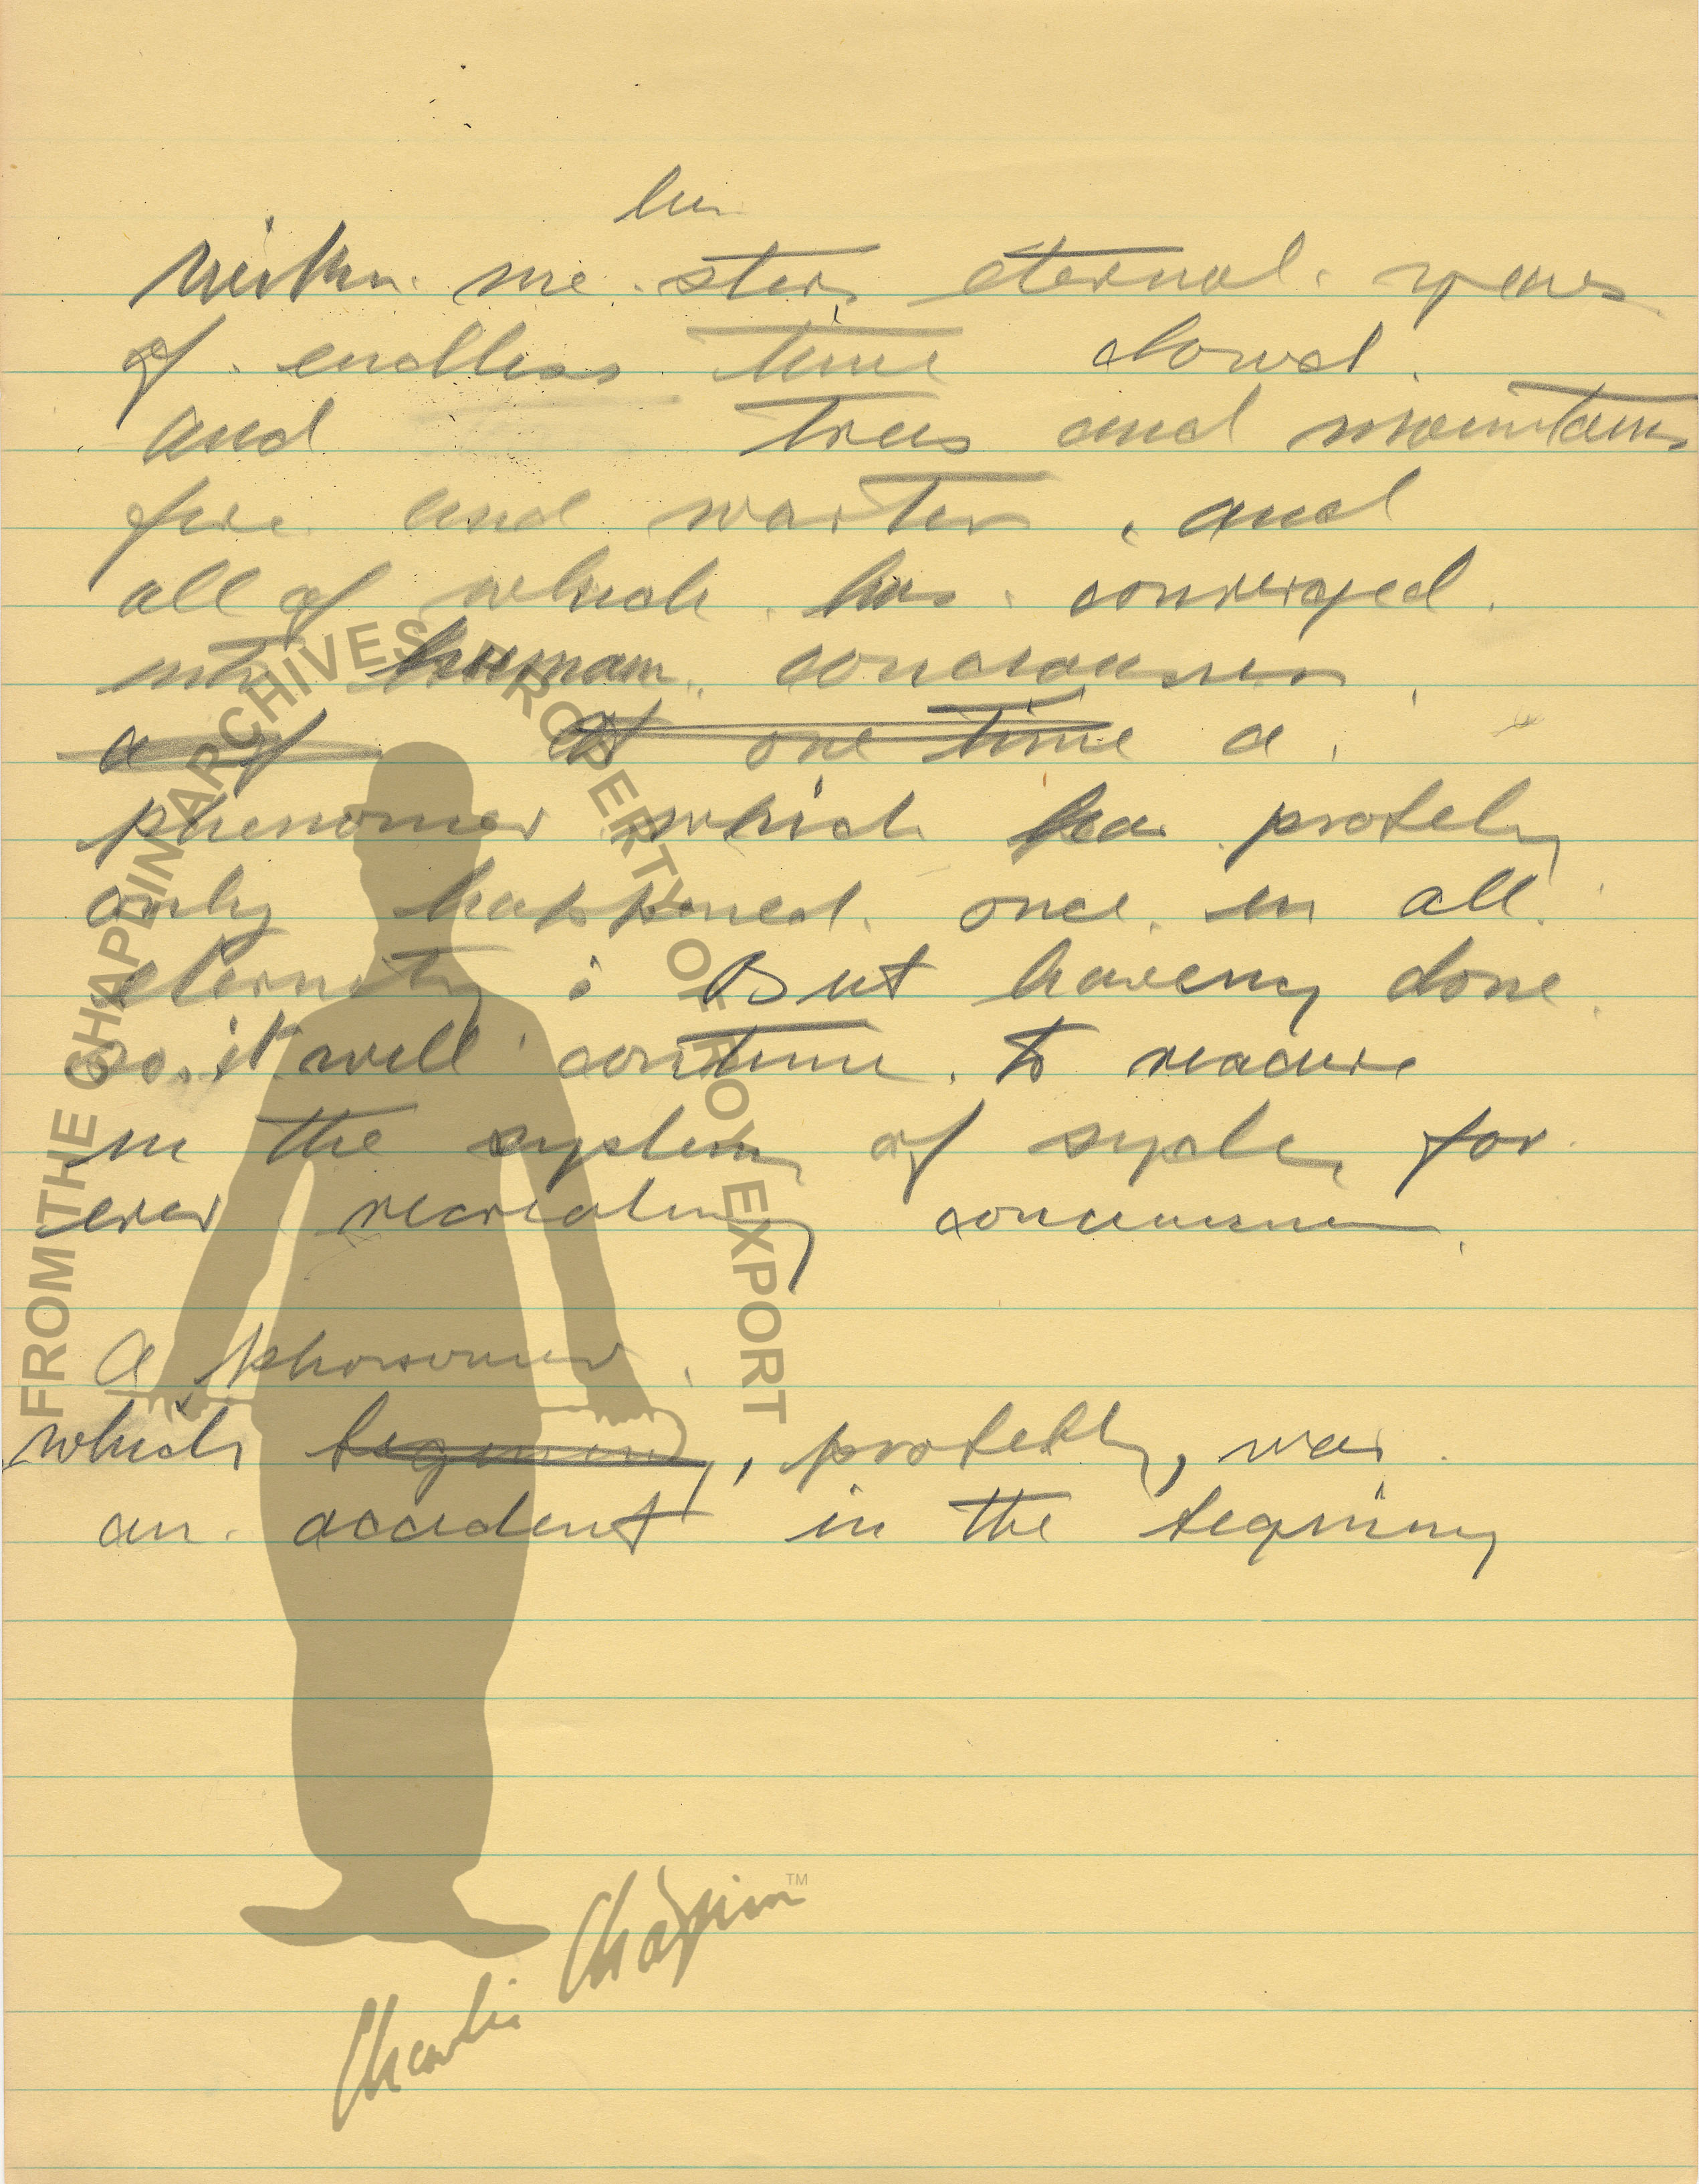 lies
Within me stirs eternal years
of endless time cloud
and trees and mountains
fire and water, and
all of which has converged
into human consciousness
a of At one time a
phenomer which has probely
only happened once in all
eternity; But haveing done
so, it will continue to reacure
in the system of sycle, for
ever recreating
A
which begining, , probebly, was
an accident in the begining
FROM THE CHAPLIN ARCHIVES PROPERTY OF ROY EXPORT
Charlie Chaplin™